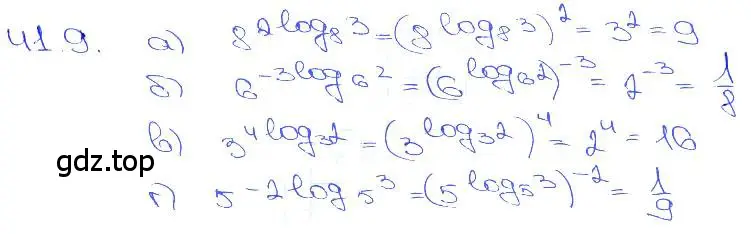 41.9. а) 8^{2log_8 3} = (8^{log_8 3})^2 = 3^2 = 9
б) 6^{-3log_6 2} = (6^{log_6 2})^{-3} = 2^{-3} = 1/8
в) 3^{4log_3 2} = (3^{log_3 2})^4 = 2^4 = 16
gdz.top
г) 5^{-2log_5 3} = (5^{log_5 3})^{-2} = 1/9